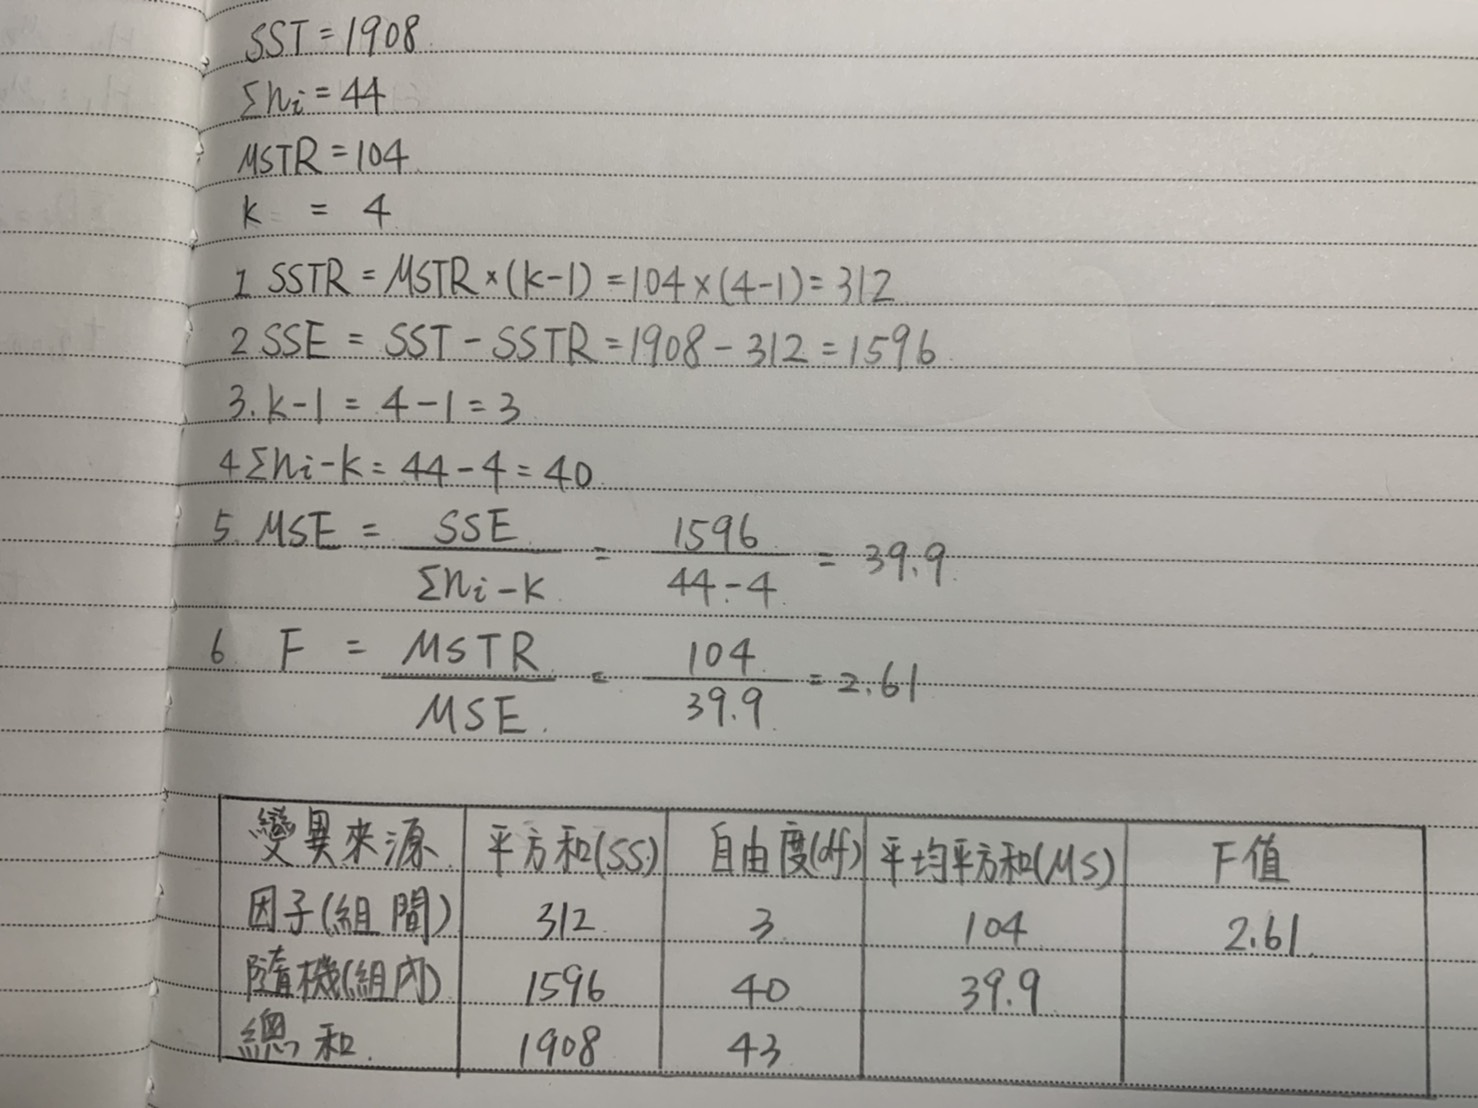 SST = 1908
Σni = 44
MSTR = 104
k = 4
1 SSTR = MSTR × (k-1) = 104 × (4-1) = 312
2 SSE = SST - SSTR = 1908 - 312 = 1596
3. k-1 = 4-1 = 3
4 Σni-k = 44-4 = 40
5. MSE = SSE / Σni-k = 1596 / 44-4 = 39.9
6 F = MSTR / MSE = 104 / 39.9 = 2.61
變異來源 平方和(SS) 自由度(df) 平均平方和(MS) F值
因子(組間) 312 3 104 2.61
隨機(組內) 1596 40 39.9
總和 1908 43